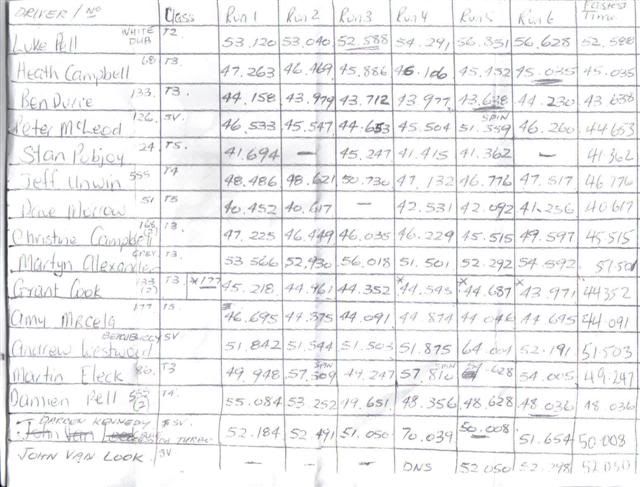 DRIVER / No Class Run 1 Run 2 Run 3 Run 4 Run 5 Run 6 Fastest Time
Luke Pell WHITE DUB T2 53.120 53.040 52.588 54.291 56.851 56.628 52.588
Heath Campbell 68 T3 47.263 46.469 45.886 46.106 45.452 45.035 45.035
Ben Durie 133 T3 44.158 43.979 43.712 43.977 43.638 44.230 43.638
Peter McLeod 126 SV 46.533 45.547 44.653 45.504 SPIN 51.559 46.260 44.653
Stan Pobjoy 24 T5 41.694 — 45.247 41.415 41.362 — 41.362
Jeff Unwin 555 T4 48.486 48.621 50.730 47.132 46.776 47.517 46.776
Dave Morrow 51 T5 40.452 40.617 — 42.531 42.092 41.256 40.617
Christine Campbell 168 (2) T3 47.225 46.449 46.035 46.229 45.515 49.597 45.515
Martyn Alexander GREY T3 53.566 52.930 56.018 51.501 52.292 54.592 51.501
Grant Cook 133 (2) T3 *177 45.218 44.961 44.352 *44.545 *44.687 *43.971 44352
Amy Mrcela 177 T5 46.695 44.375 44.091 44.874 44.046 44.695 44.091
Andrew Westwood BEACHBUGGY SV 51.842 51.544 51.503 51.875 64.004 52.191 51.503
Martin Fleck 86 T3 49.948 SPIN 57.309 49.247 SPIN 57.810 .628 54.005 49.247
Damien Pell 555 (2) T4 55.084 53.252 49.651 48.356 48.628 48.036 48.036
DARREN KENNEDY SV 52.184 52.491 51.050 70.039 50.008 51.654 50.008
JOHN VAN LOOK SV — — DNS 52.050 52.298 52.050